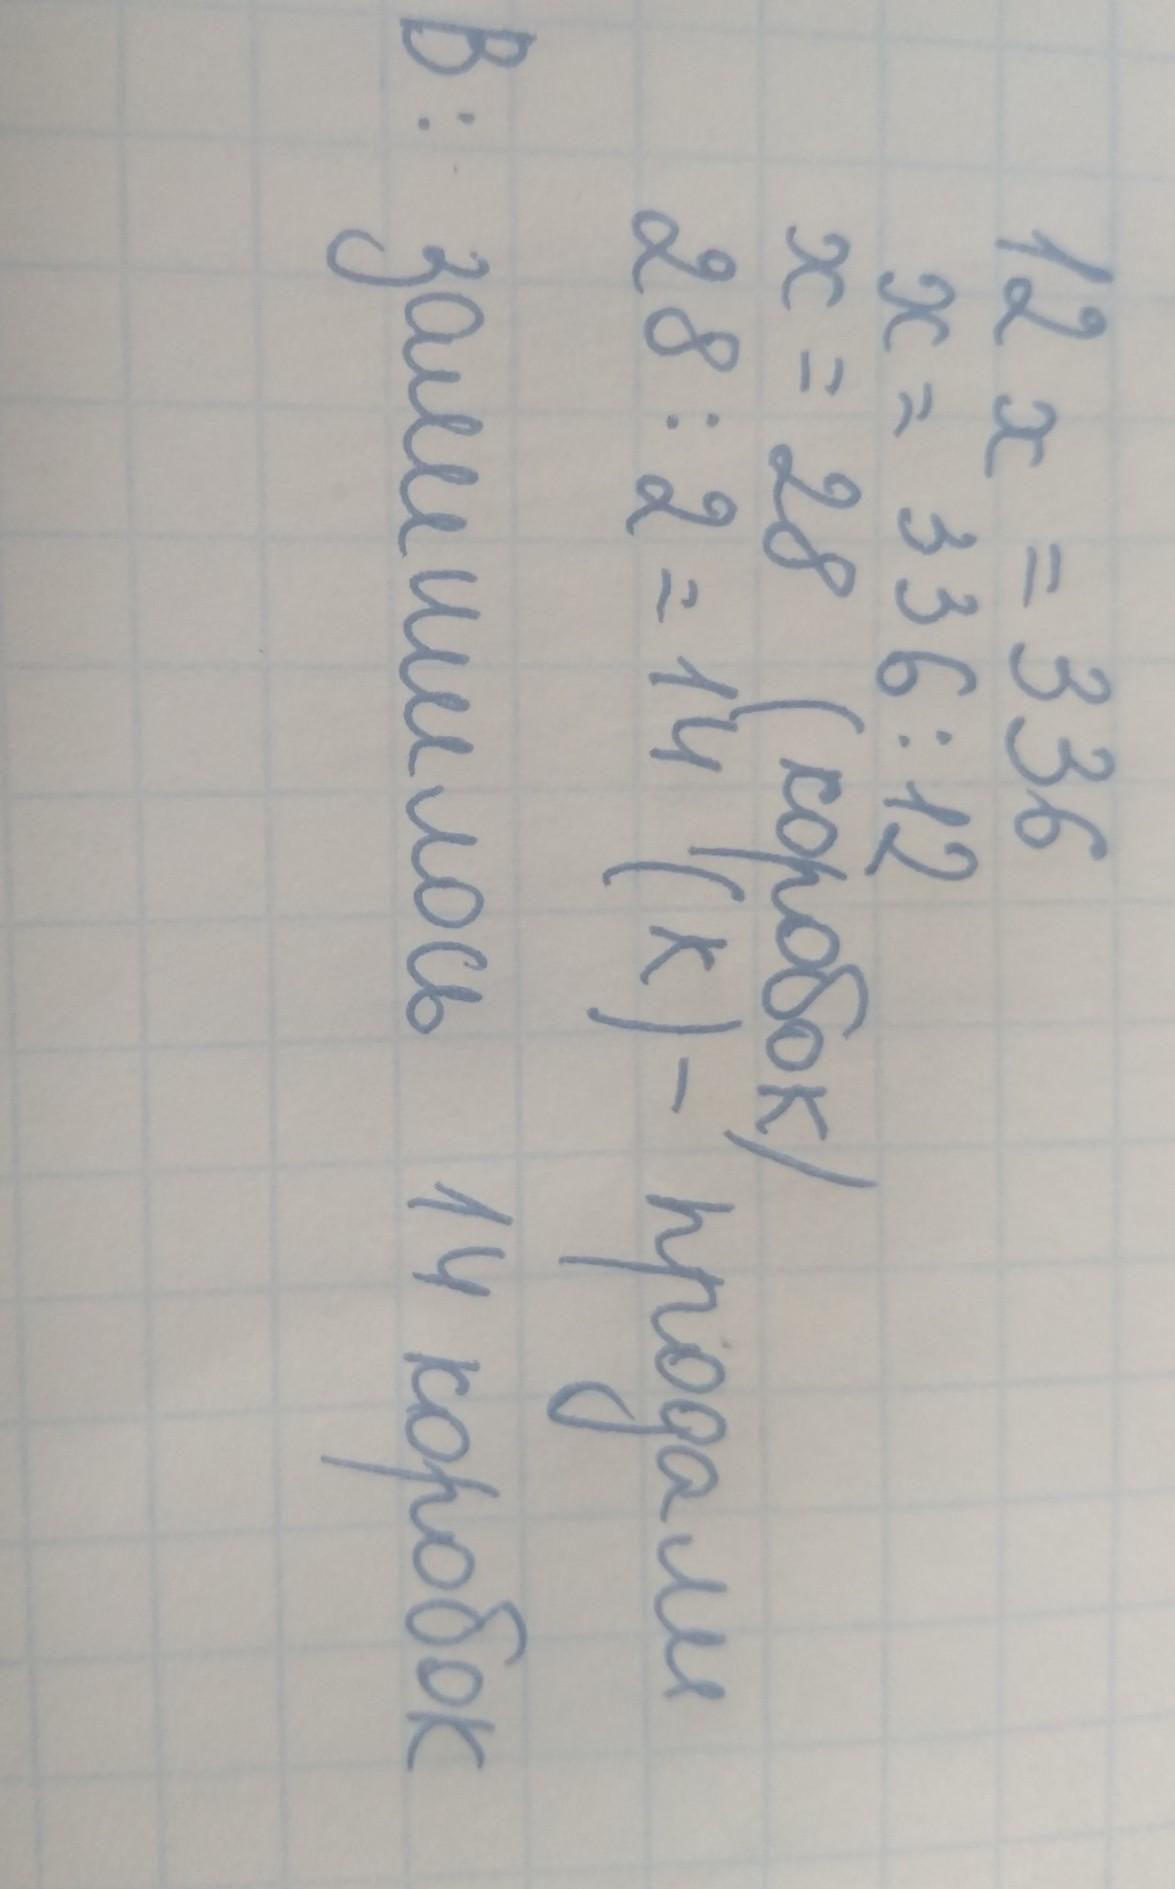 12 x = 336
x = 336 : 12
x = 28 (коробок)
28 : 2 = 14 (к) - продали
В: залишилось 14 коробок